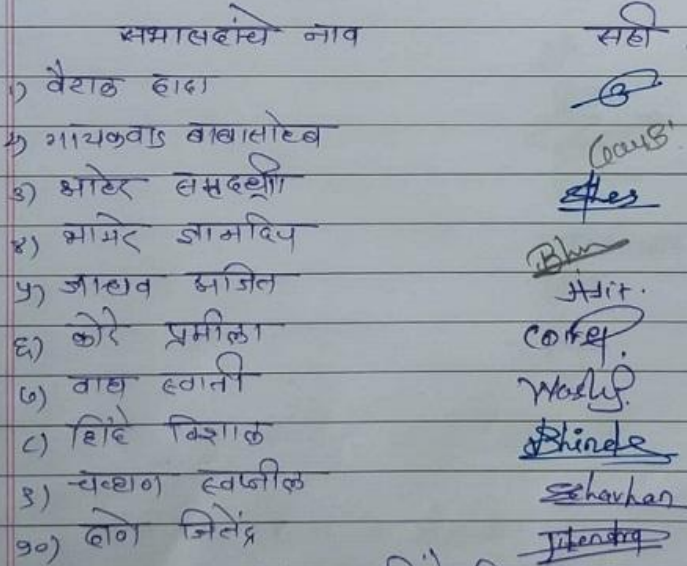 सभासदांचे नाव सही
१) वैराळ दादा
२) गायकवाड बाबासाहेब
३) आहेर समदर्शी
४) भामरे ज्ञानदिप
५) जाधव अजित Ajit.
६) कोरे प्रमीला
७) वाघ स्वाती
८) शिंदे विशाल Shinde
९) चव्हाण स्वप्नील Schavhan
१०) दाने जितेंद्र Jitendra